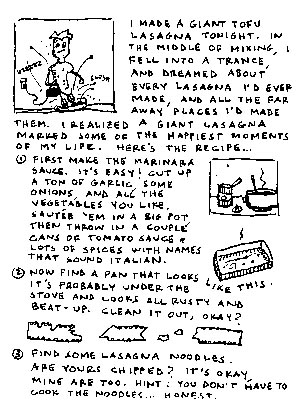 I MADE A GIANT TOFU
LASAGNA TONIGHT. IN
THE MIDDLE OF MIXING, I
FELL INTO A TRANCE,
AND DREAMED ABOUT
EVERY LASAGNA I'D EVER
MADE, AND ALL THE FAR
AWAY PLACES I'D MADE
THEM. I REALIZED A GIANT LASAGNA
MARKED SOME OF THE HAPPIEST MOMENTS
OF MY LIFE. HERE'S THE RECIPE...
① FIRST MAKE THE MARINARA
SAUCE. IT'S EASY! CUT UP
A TON OF GARLIC SOME
ONIONS, AND ALL THE
VEGETABLES YOU LIKE.
SAUTÉE 'EM IN A BIG POT
THEN THROW IN A COUPLE
CANS OF TOMATO SAUCE &
LOTS OF SPICES WITH NAMES
THAT SOUND ITALIAN.
② NOW FIND A PAN THAT LOOKS
LIKE THIS.
IT'S PROBABLY UNDER THE
STOVE AND LOOKS ALL RUSTY AND
BEAT-UP. CLEAN IT OUT, OKAY?
③ FIND SOME LASAGNA NOODLES.
ARE YOURS CHIPPED? IT'S OKAY,
MINE ARE TOO. HINT: YOU DON'T HAVE TO
COOK THE NOODLES... HONEST.